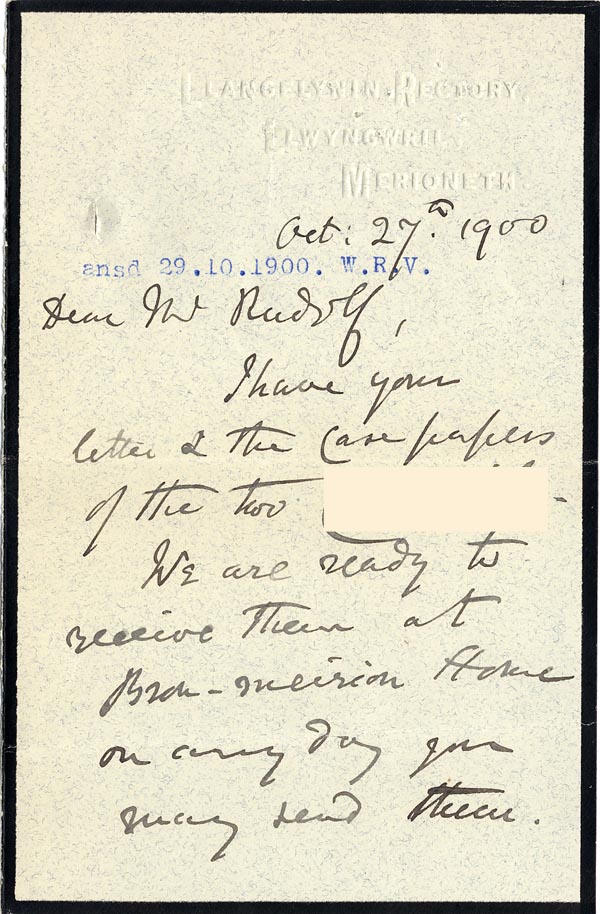 LLANGELYNIN RECTORY,
LLWYNGWRIL,
MERIONETH.
Oct: 27th. 1900
ansd 29.10.1900. W.R.V.
Dear Mr Rudolf,
I have your
letter & the case papers
of the two
We are ready to
receive them at
Bron-meirion Home
on any day you
may send them.